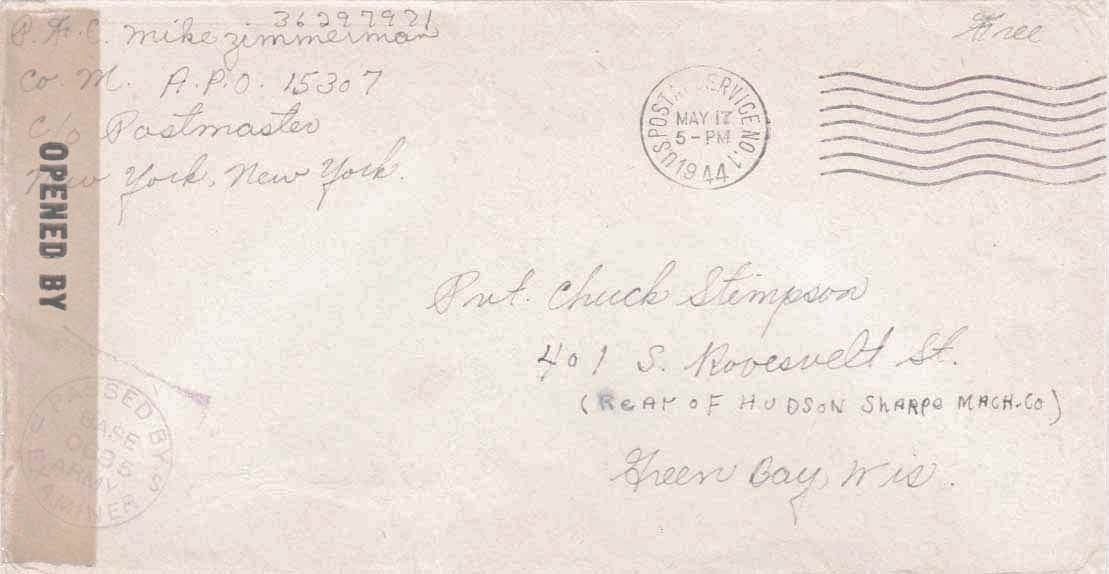 36297921
P.F.C. Mike Zimmerman
Co. M. A.P.O. 15307
C/o Postmaster
New York, New York.
Free
U.S. POSTAL SERVICE NO. 1
MAY 17
5-PM
1944
OPENED BY
Pvt. Chuck Stimpson
401 S. Roosvelt St.
(ReAr oF HUDSoN SHARPe MACH.Co)
Green Bay, Wis.
PASSED BY
BASE
ARMY
EXAMINER